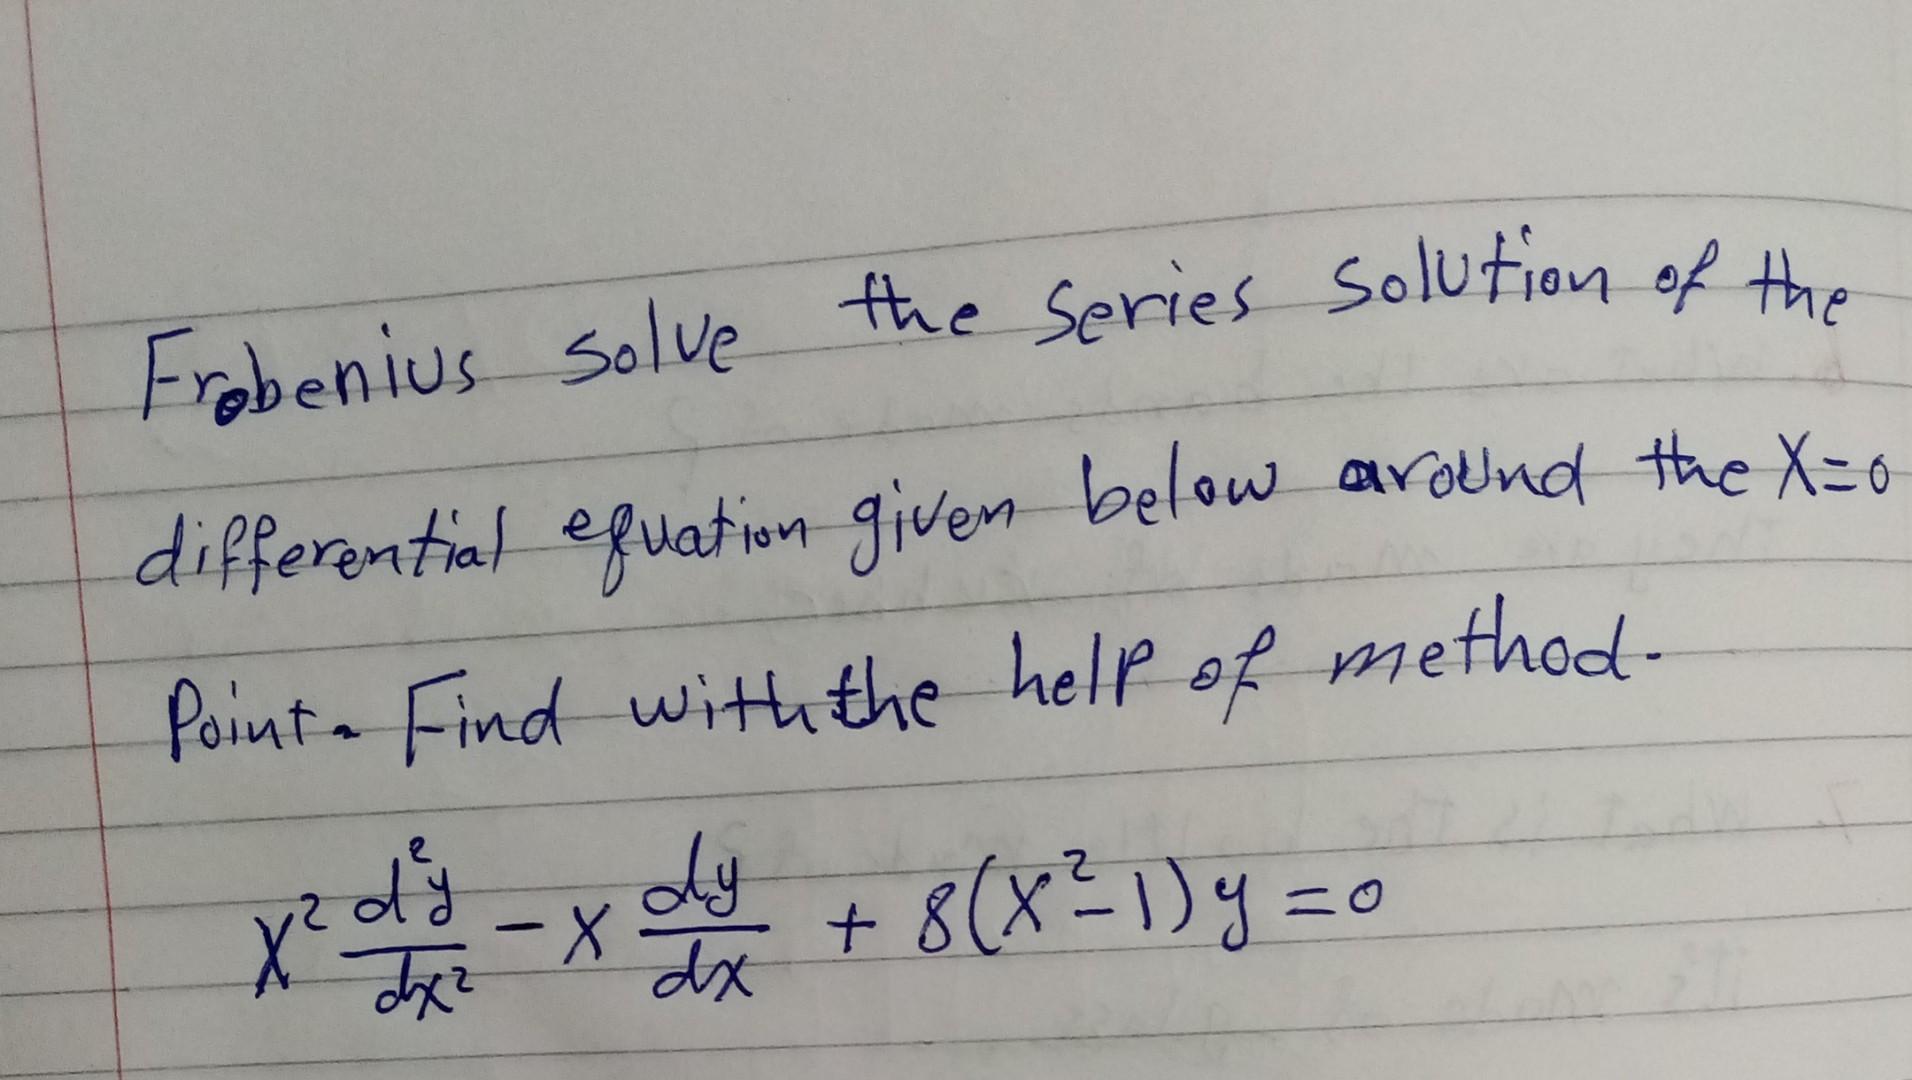 Frobenius solve the series solution of the
differential equation given below around the X=0
Point. Find with the help of method.
x² d²y/dx² - x dy/dx + 8(x²-1)y=0